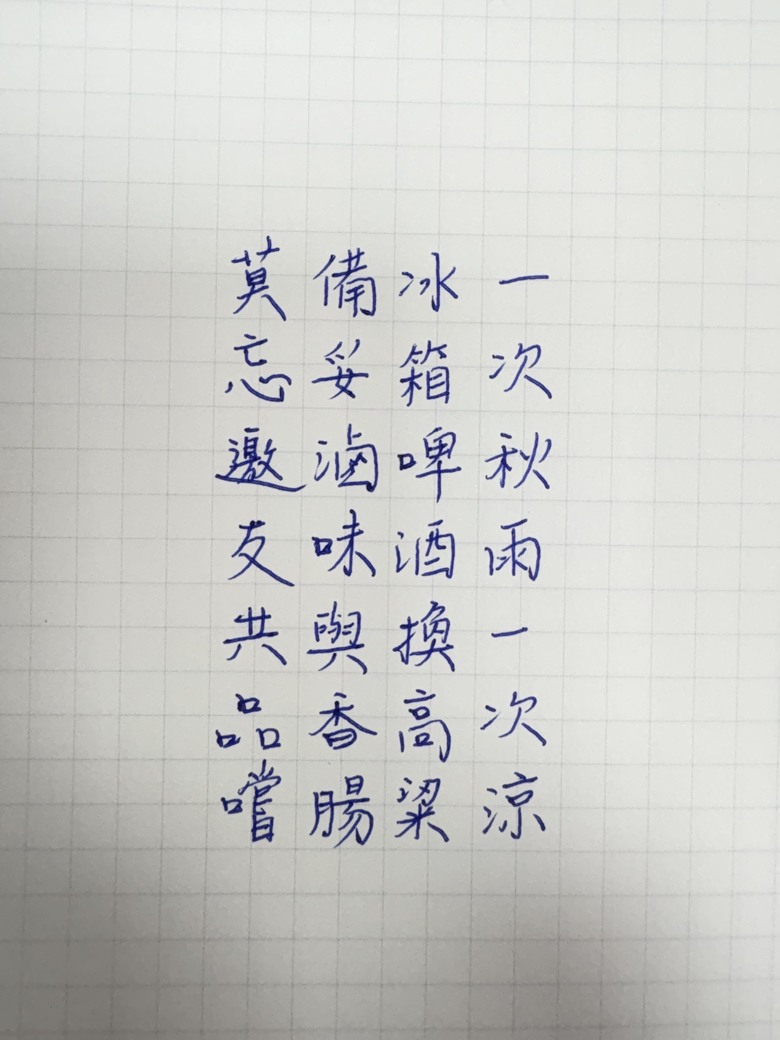 一次秋雨一次涼
冰箱啤酒換高粱
備妥滷味與香腸
莫忘邀友共品嚐